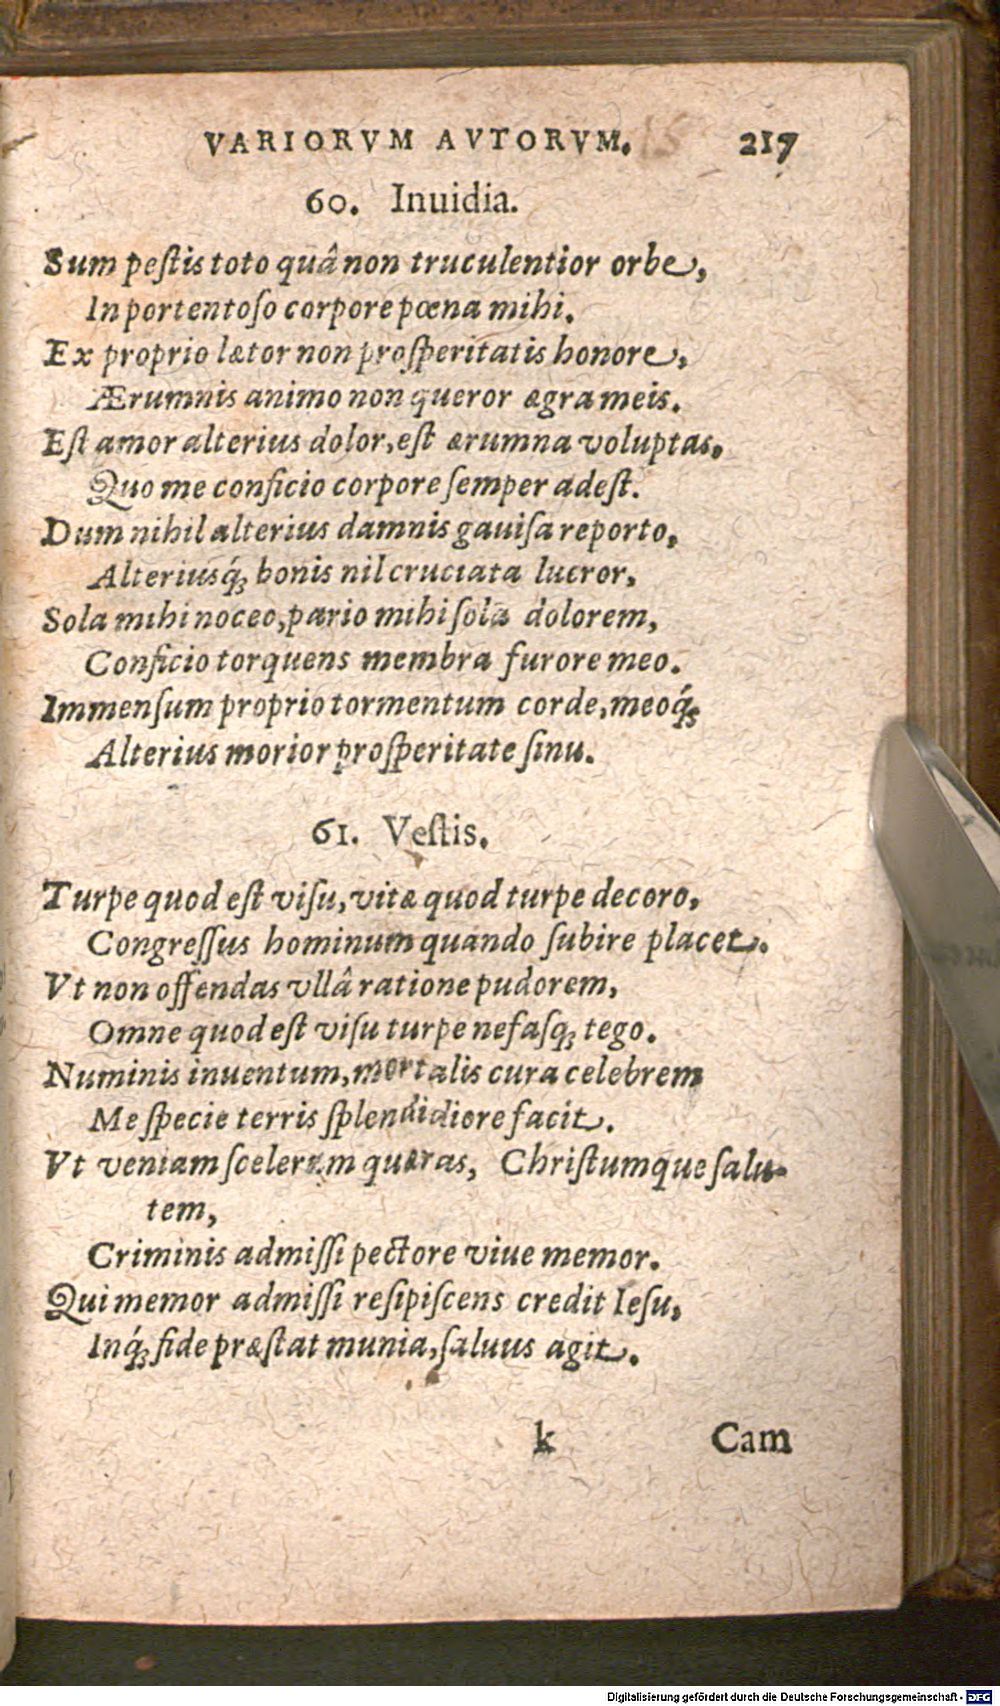 VARIORVM AVTORVM. 217
60. Inuidia.
Sum peſtis toto quâ non truculentior orbe,
In portentoſo corpore pœna mihi.
Ex proprio lætor non proſperitatis honore,
Ærumnis animo non queror ægra meis.
Eſt amor alterius dolor, eſt ærumna voluptas,
Quo me conficio corpore ſemper adeſt.
Dum nihil alterius damnis gauiſa reporto,
Alteriusq́; bonis nil cruciata lucror,
Sola mihi noceo, pario mihi ſola dolorem,
Conficio torquens membra furore meo.
Immenſum proprio tormentum corde, meoq́;
Alterius morior proſperitate ſinu.
61. Veſtis.
Turpe quod eſt viſu, vitæ quod turpe decoro,
Congreſſus hominum quando ſubire placet.
Vt non offendas vllâ ratione pudorem,
Omne quod eſt viſu turpe nefasq; tego.
Numinis inuentum, mortalis cura celebrem
Me ſpecie terris ſplendidiore facit.
Vt veniam ſcelerum quæras, Chriſtumque ſalu-
tem,
Criminis admiſſi pectore viue memor.
Qui memor admiſſi reſipiſcens credit Ieſu,
Inq́; fide præſtat munia, ſaluus agit.
k Cam
Digitalisierung gefördert durch die Deutsche Forschungsgemeinschaft - DFG